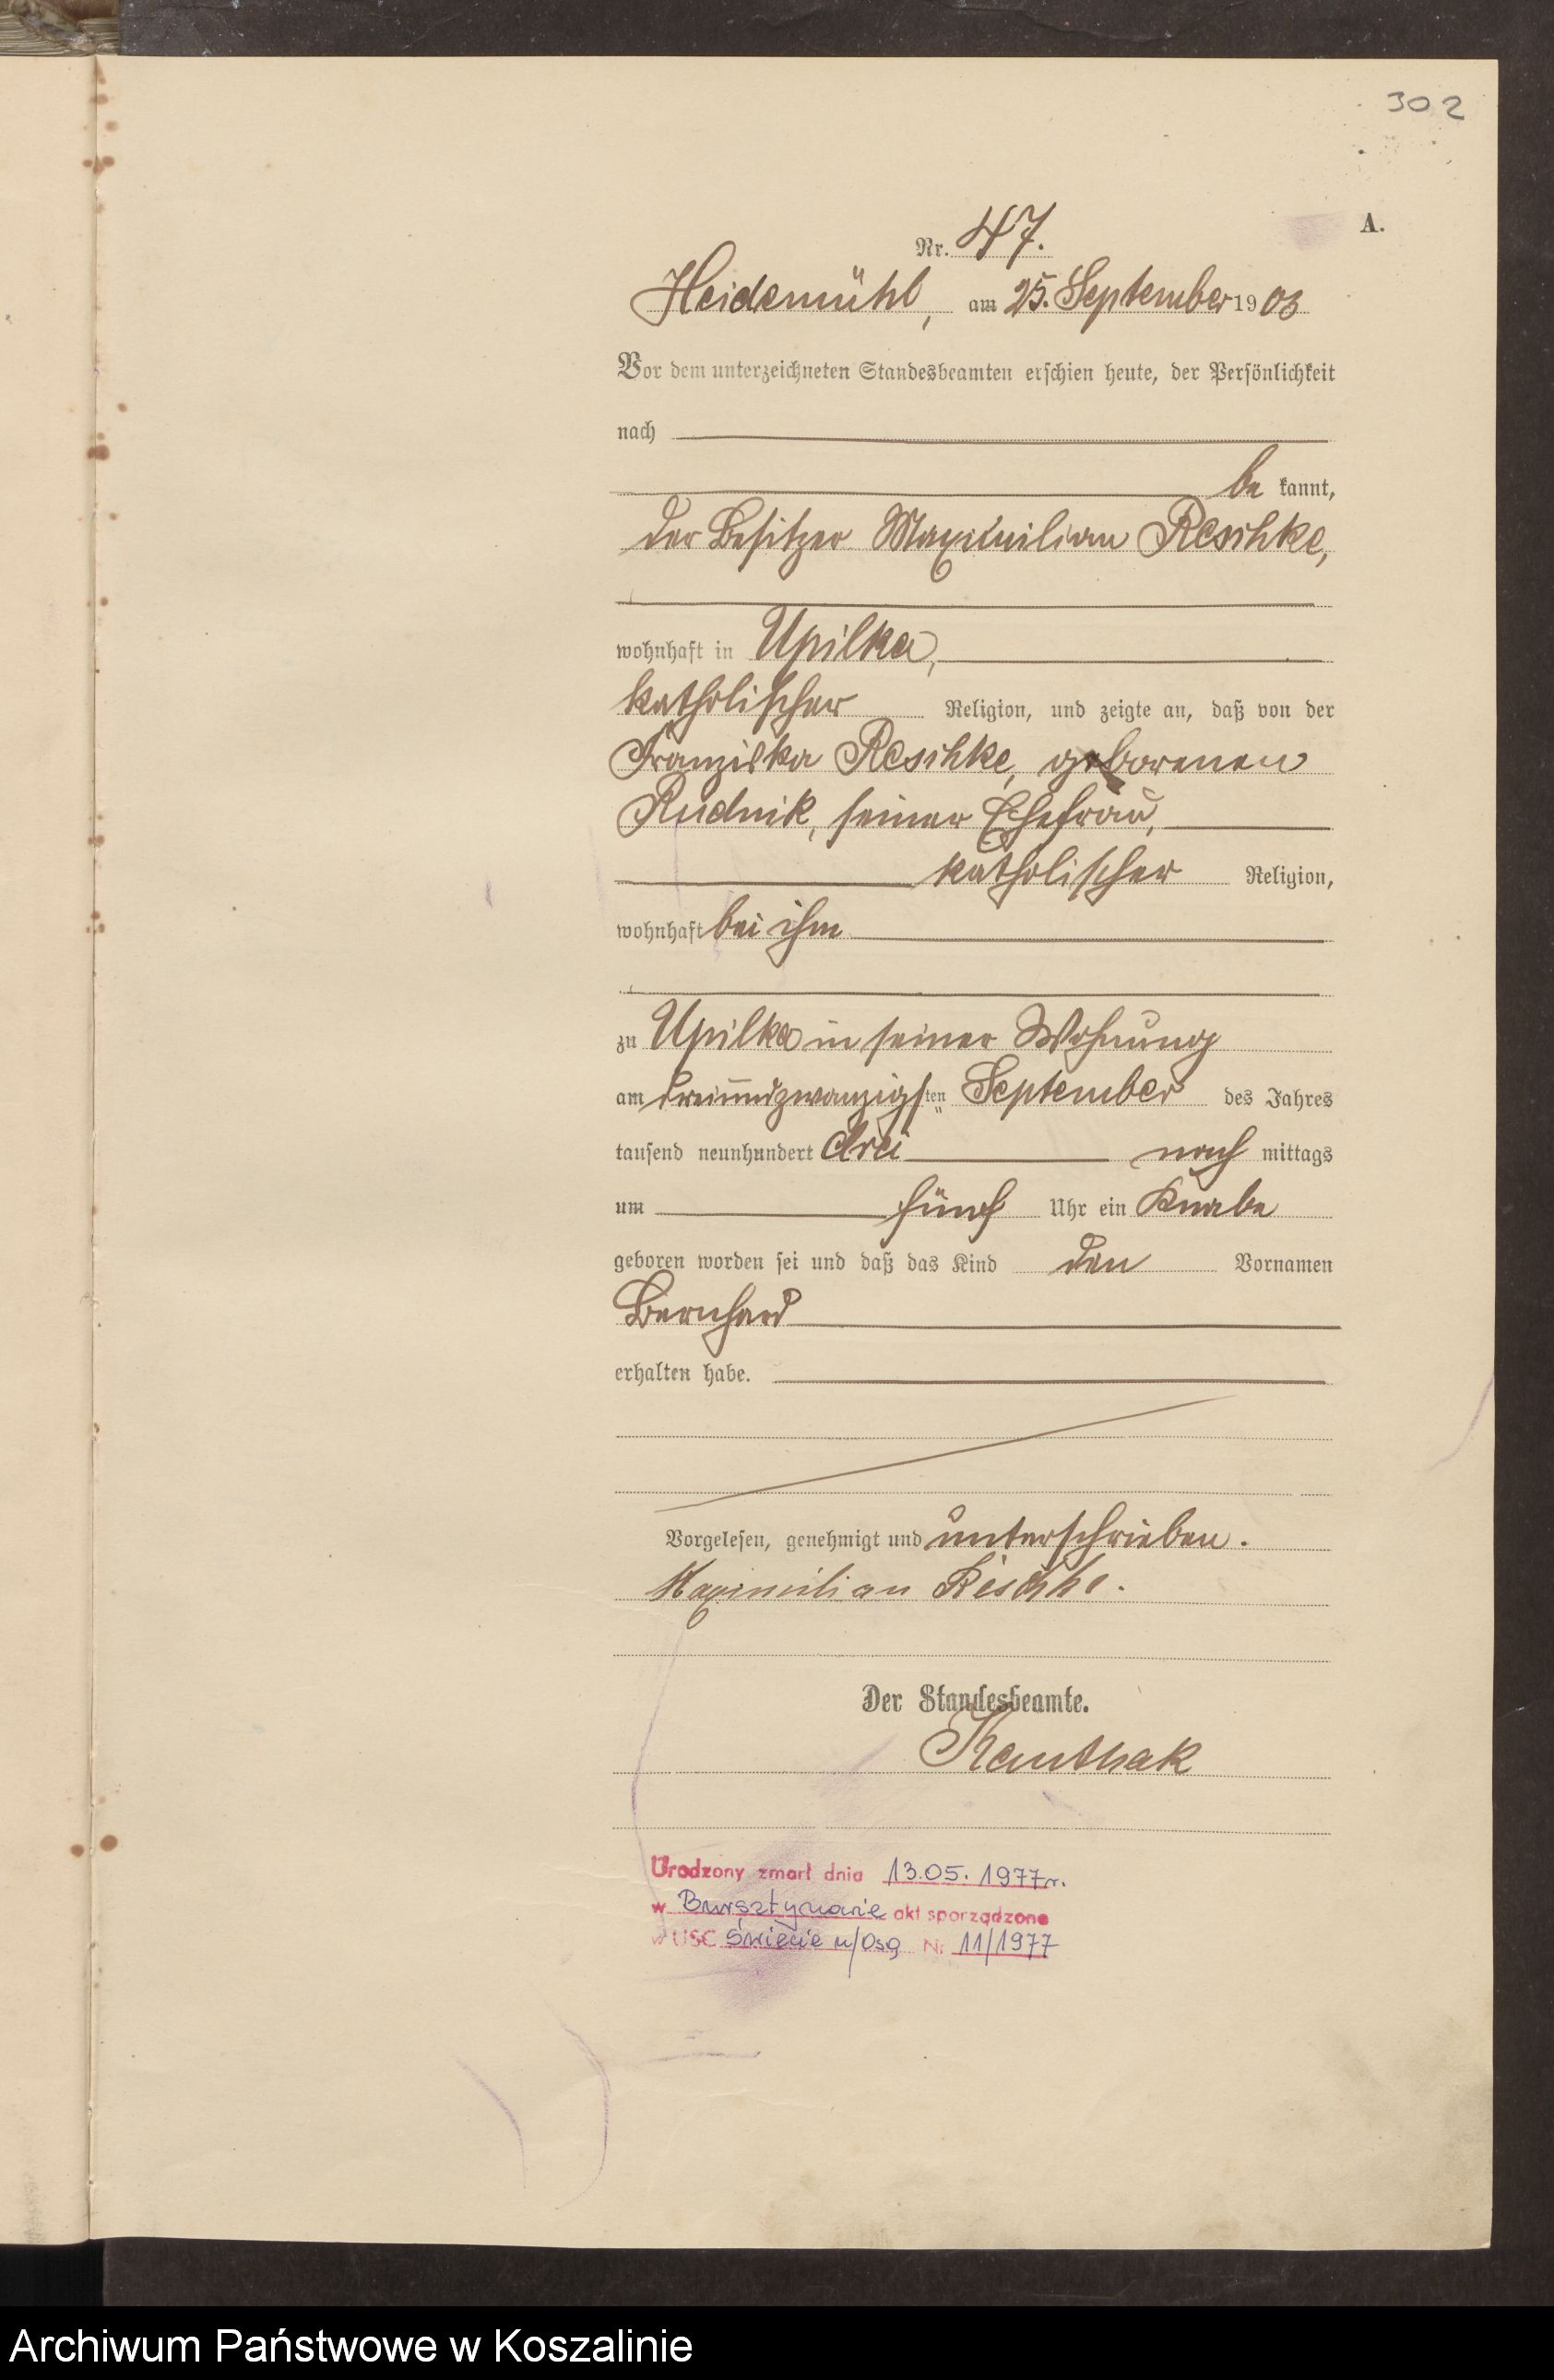 302
A.
Nr. 47.
Heidemühl, am 25. September 1903
Vor dem unterzeichneten Standesbeamten erschien heute, der Persönlichkeit
nach
be kannt,
der Besitzer Maximilian Reschke,
wohnhaft in Upilka,
katholischer Religion, und zeigte an, daß von der
Franziska Reschke, geborenen
Rudnik, seiner Ehefrau,
katholischer Religion,
wohnhaft bei ihm
zu Upilka in seiner Wohnung
am dreiundzwanzigsten September des Jahres
tausend neunhundert drei nach mittags
um fünf Uhr ein Knabe
geboren worden sei und daß das Kind den Vornamen
Bernhard
erhalten habe.
Vorgelesen, genehmigt und unterschrieben.
Maximilian Reschke.
Der Standesbeamte.
Urodzony zmarł dnia 13.05.1977r.
w Bursztynowie akt sporządzono
w USC Świecie n/Osą Nr 11/1977
Archiwum Państwowe w Koszalinie